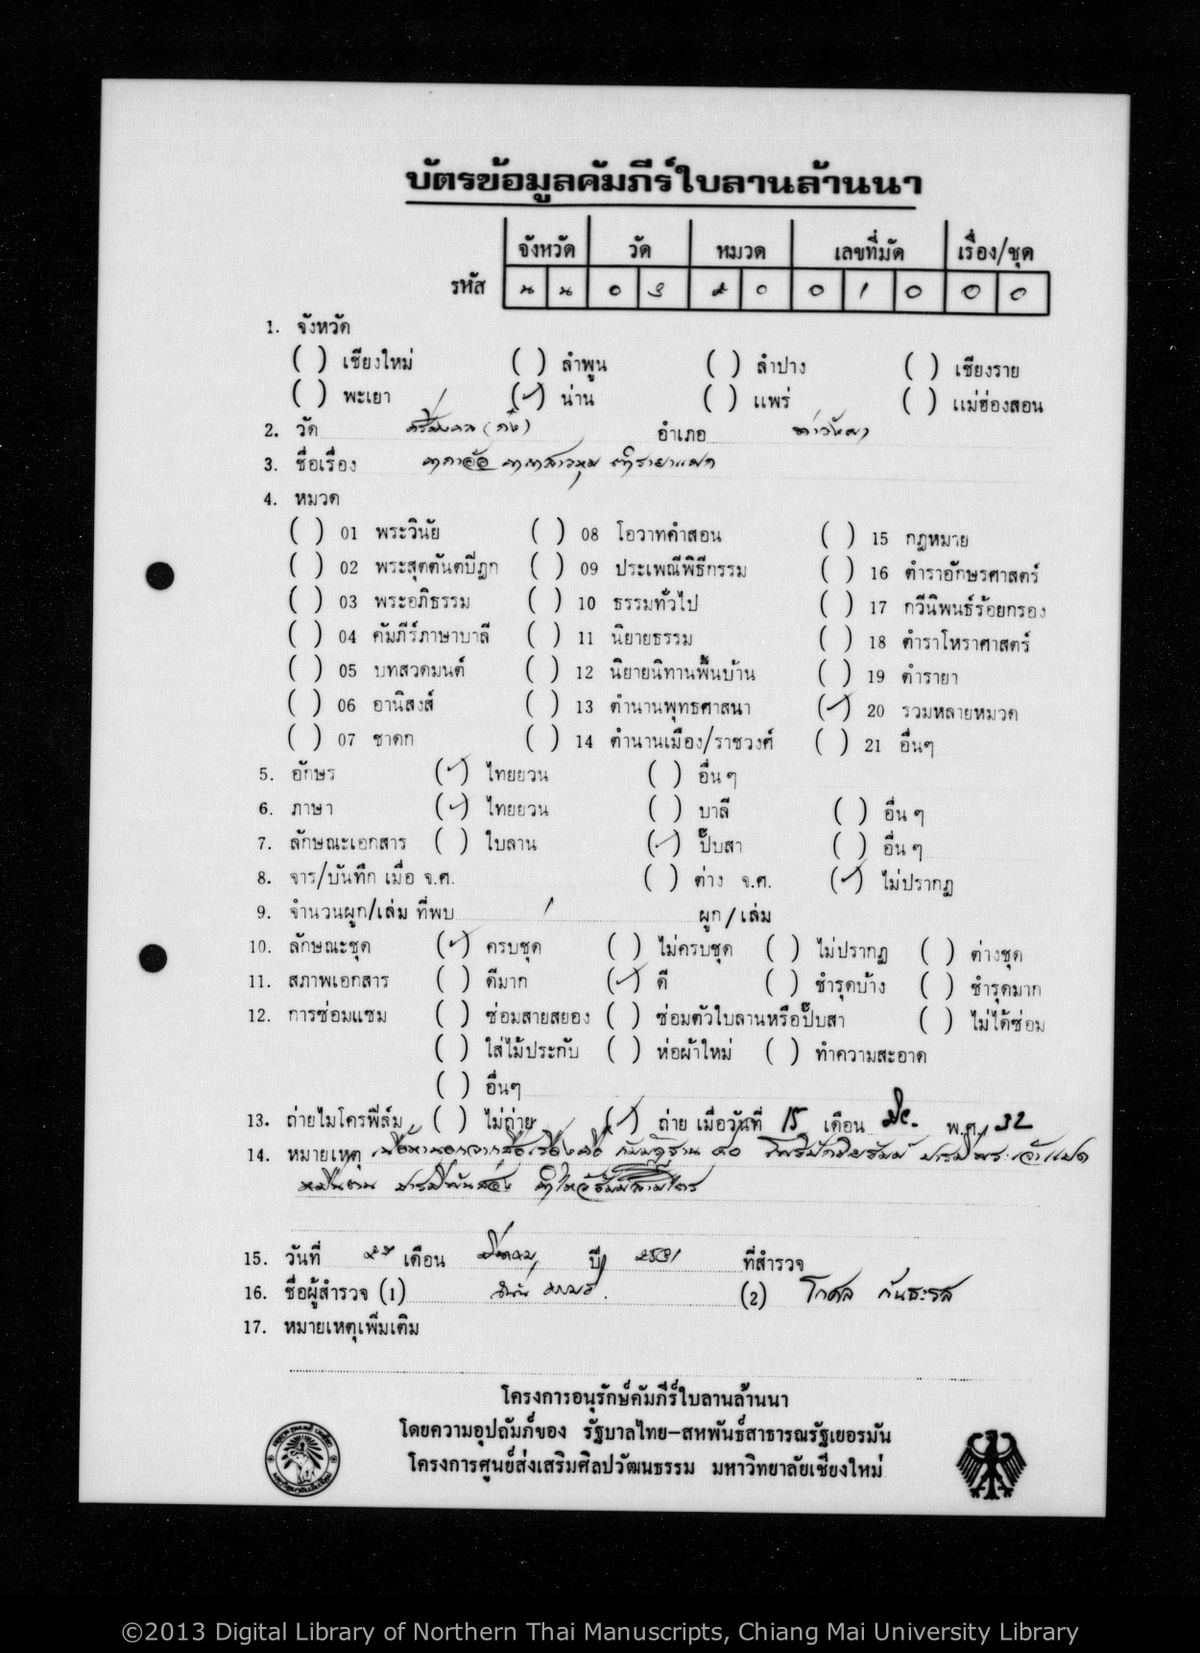 บัตรข้อมูลคัมภีร์ใบลานล้านนา
จังหวัด วัด หมวด เลขที่มัด เรื่อง/ชุด
รหัส น น 0 3 2 0 0 1 0 0 0
1. จังหวัด
( ) เชียงใหม่ ( ) ลำพูน ( ) ลำปาง ( ) เชียงราย
( ) พะเยา (✓) น่าน ( ) แพร่ ( ) แม่ฮ่องสอน
2. วัด ศรีมงคล (ก๋ง) อำเภอ ท่าวังผา
3. ชื่อเรื่อง
4. หมวด
( ) 01 พระวินัย ( ) 08 โอวาทคำสอน ( ) 15 กฎหมาย
( ) 02 พระสุตตันตปิฎก ( ) 09 ประเพณีพิธีกรรม ( ) 16 ตำราอักษรศาสตร์
( ) 03 พระอภิธรรม ( ) 10 ธรรมทั่วไป ( ) 17 กวีนิพนธ์ร้อยกรอง
( ) 04 คัมภีร์ภาษาบาลี ( ) 11 นิยายธรรม ( ) 18 ตำราโหราศาสตร์
( ) 05 บทสวดมนต์ ( ) 12 นิยายนิทานพื้นบ้าน ( ) 19 ตำรายา
( ) 06 อานิสงส์ ( ) 13 ตำนานพุทธศาสนา (✓) 20 รวมหลายหมวด
( ) 07 ชาดก ( ) 14 ตำนานเมือง/ราชวงศ์ ( ) 21 อื่นๆ
5. อักษร (✓) ไทยยวน ( ) อื่นๆ
6. ภาษา (✓) ไทยยวน ( ) บาลี ( ) อื่นๆ
7. ลักษณะเอกสาร ( ) ใบลาน (✓) ปั๊บสา ( ) อื่นๆ
8. จาร/บันทึก เมื่อ จ.ศ. ( ) ต่าง จ.ศ. (✓) ไม่ปรากฏ
9. จำนวนผูก/เล่ม ที่พบ 1 ผูก/เล่ม
10. ลักษณะชุด (✓) ครบชุด ( ) ไม่ครบชุด ( ) ไม่ปรากฏ ( ) ต่างชุด
11. สภาพเอกสาร ( ) ดีมาก (✓) ดี ( ) ชำรุดบ้าง ( ) ชำรุดมาก
12. การซ่อมแซม ( ) ซ่อมสายสยอง ( ) ซ่อมตัวใบลานหรือปั๊บสา ( ) ไม่ได้ซ่อม
( ) ใส่ไม้ประกับ ( ) ห่อผ้าใหม่ ( ) ทำความสะอาด
( ) อื่นๆ
13. ถ่ายไมโครฟิล์ม ( ) ไม่ถ่าย (✓) ถ่าย เมื่อวันที่ 15 เดือน มิย. พ.ศ. 32
14. หมายเหตุ เนื้อหานอกจากชื่อเรื่องคือ กัมมัฏฐาน ๔๐ โพธิปักขิยธัมม์ บารมีพระเจ้าแปด
หมื่นตน
15. วันที่ ๒๕ เดือน มีนาคม ปี 2531 ที่สำรวจ
16. ชื่อผู้สำรวจ (1) (2) โกศล กันธะรส
17. หมายเหตุเพิ่มเติม
โครงการอนุรักษ์คัมภีร์ใบลานล้านนา
โดยความอุปถัมภ์ของ รัฐบาลไทย-สหพันธ์สาธารณรัฐเยอรมัน
โครงการศูนย์ส่งเสริมศิลปวัฒนธรรม มหาวิทยาลัยเชียงใหม่
©2013 Digital Library of Northern Thai Manuscripts, Chiang Mai University Library